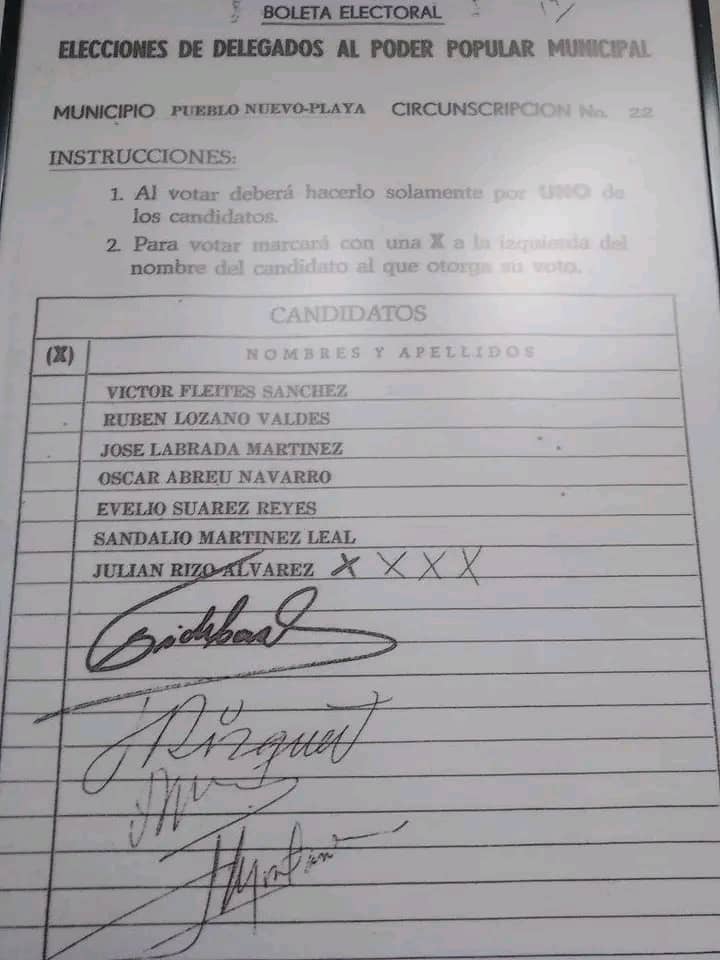 BOLETA ELECTORAL
ELECCIONES DE DELEGADOS AL PODER POPULAR MUNICIPAL
MUNICIPIO PUEBLO NUEVO-PLAYA CIRCUNSCRIPCION No. 22
INSTRUCCIONES:
1. Al votar deberá hacerlo solamente por UNO de
los candidatos.
2. Para votar marcará con una X a la izquierda del
nombre del candidato al que otorga su voto.
CANDIDATOS
(X) NOMBRES Y APELLIDOS
VICTOR FLEITES SANCHEZ
RUBEN LOZANO VALDES
JOSE LABRADA MARTINEZ
OSCAR ABREU NAVARRO
EVELIO SUAREZ REYES
SANDALIO MARTINEZ LEAL
JULIAN RIZO ALVAREZ X X X X